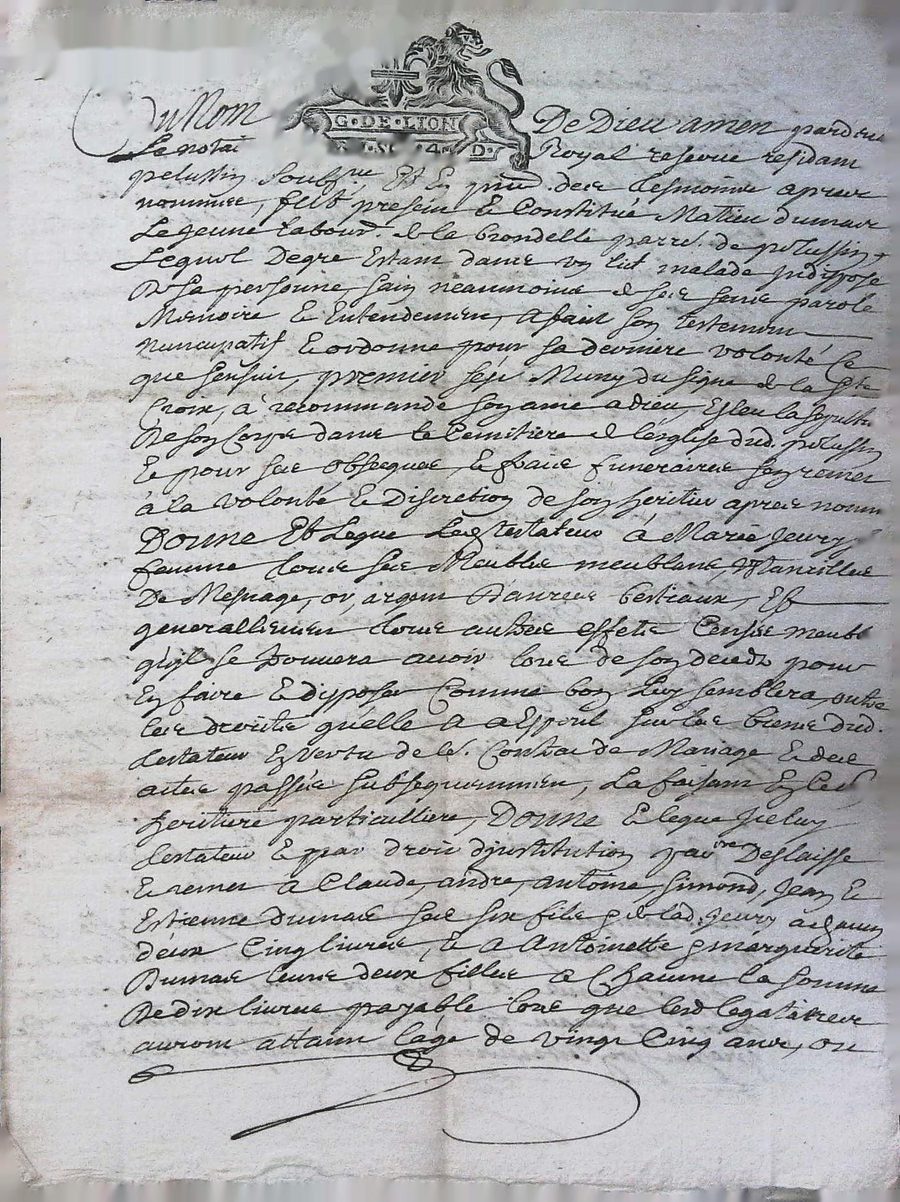 G. DE. LION
4. D.
Au Nom De Dieu amen pardevt
Le notai Royal reservé residam
pelussin soubsne, Et En pnce des tesmoins apres
nommes, fust presem & Constitué Matieu dumas
Le jeune labourr. de la brondelle parre. de pelussin
Lequel De gre Estam dans un lit malade Indispose
De sa personne, sain neaumoins de ses sens parole
Memoire & Entendemen, a fait son testemen
nuncupatif & ordonne pour sa derniere volonté Ce
que sensuit, premier sest Muny du signe de la ste
Croix, a recommandé son ame a dieu, Esleu la sepultre
De son Corps dans le Cemitiere de leglise dud. pelussin
Et pour ses obseques, & frais funeraires sen remet
à la volonté & Discretion de son heritier apres nomm
Donne Et Legue Led testateur à Marie Jeury sa
femme tous ses Meubles meublans, Ustancilles
De Mesnage, or, argem Danrees bestiaux, Et
generallemen tous autres effets Censés meubl
quil se trouvera avoir lors de son deceds pour
En faire & disposer Comme bon Luy semblera, outre
les droits quelle a a Espoul sur les biens dud.
testateur En vertu de le. Contrat de Mariage & des
actes passés subsequemmen, La faisam En Ce
heritiere particulliere, Donne & legue Iceluy
testateur & par droit dinstitution Deslaisse
& remet a Claude, andre, antoine, simond, Jean &
Estienne Dumas ses six fils & de lad. Jeury à chacun
deux Cinq livres, & a Antoinette & marguerite
Dumas leurs deux filles a Chacune la somme
De dix livres payable lors que lesd legataires
aurom attaint lage de vingt Cinq ans, ou